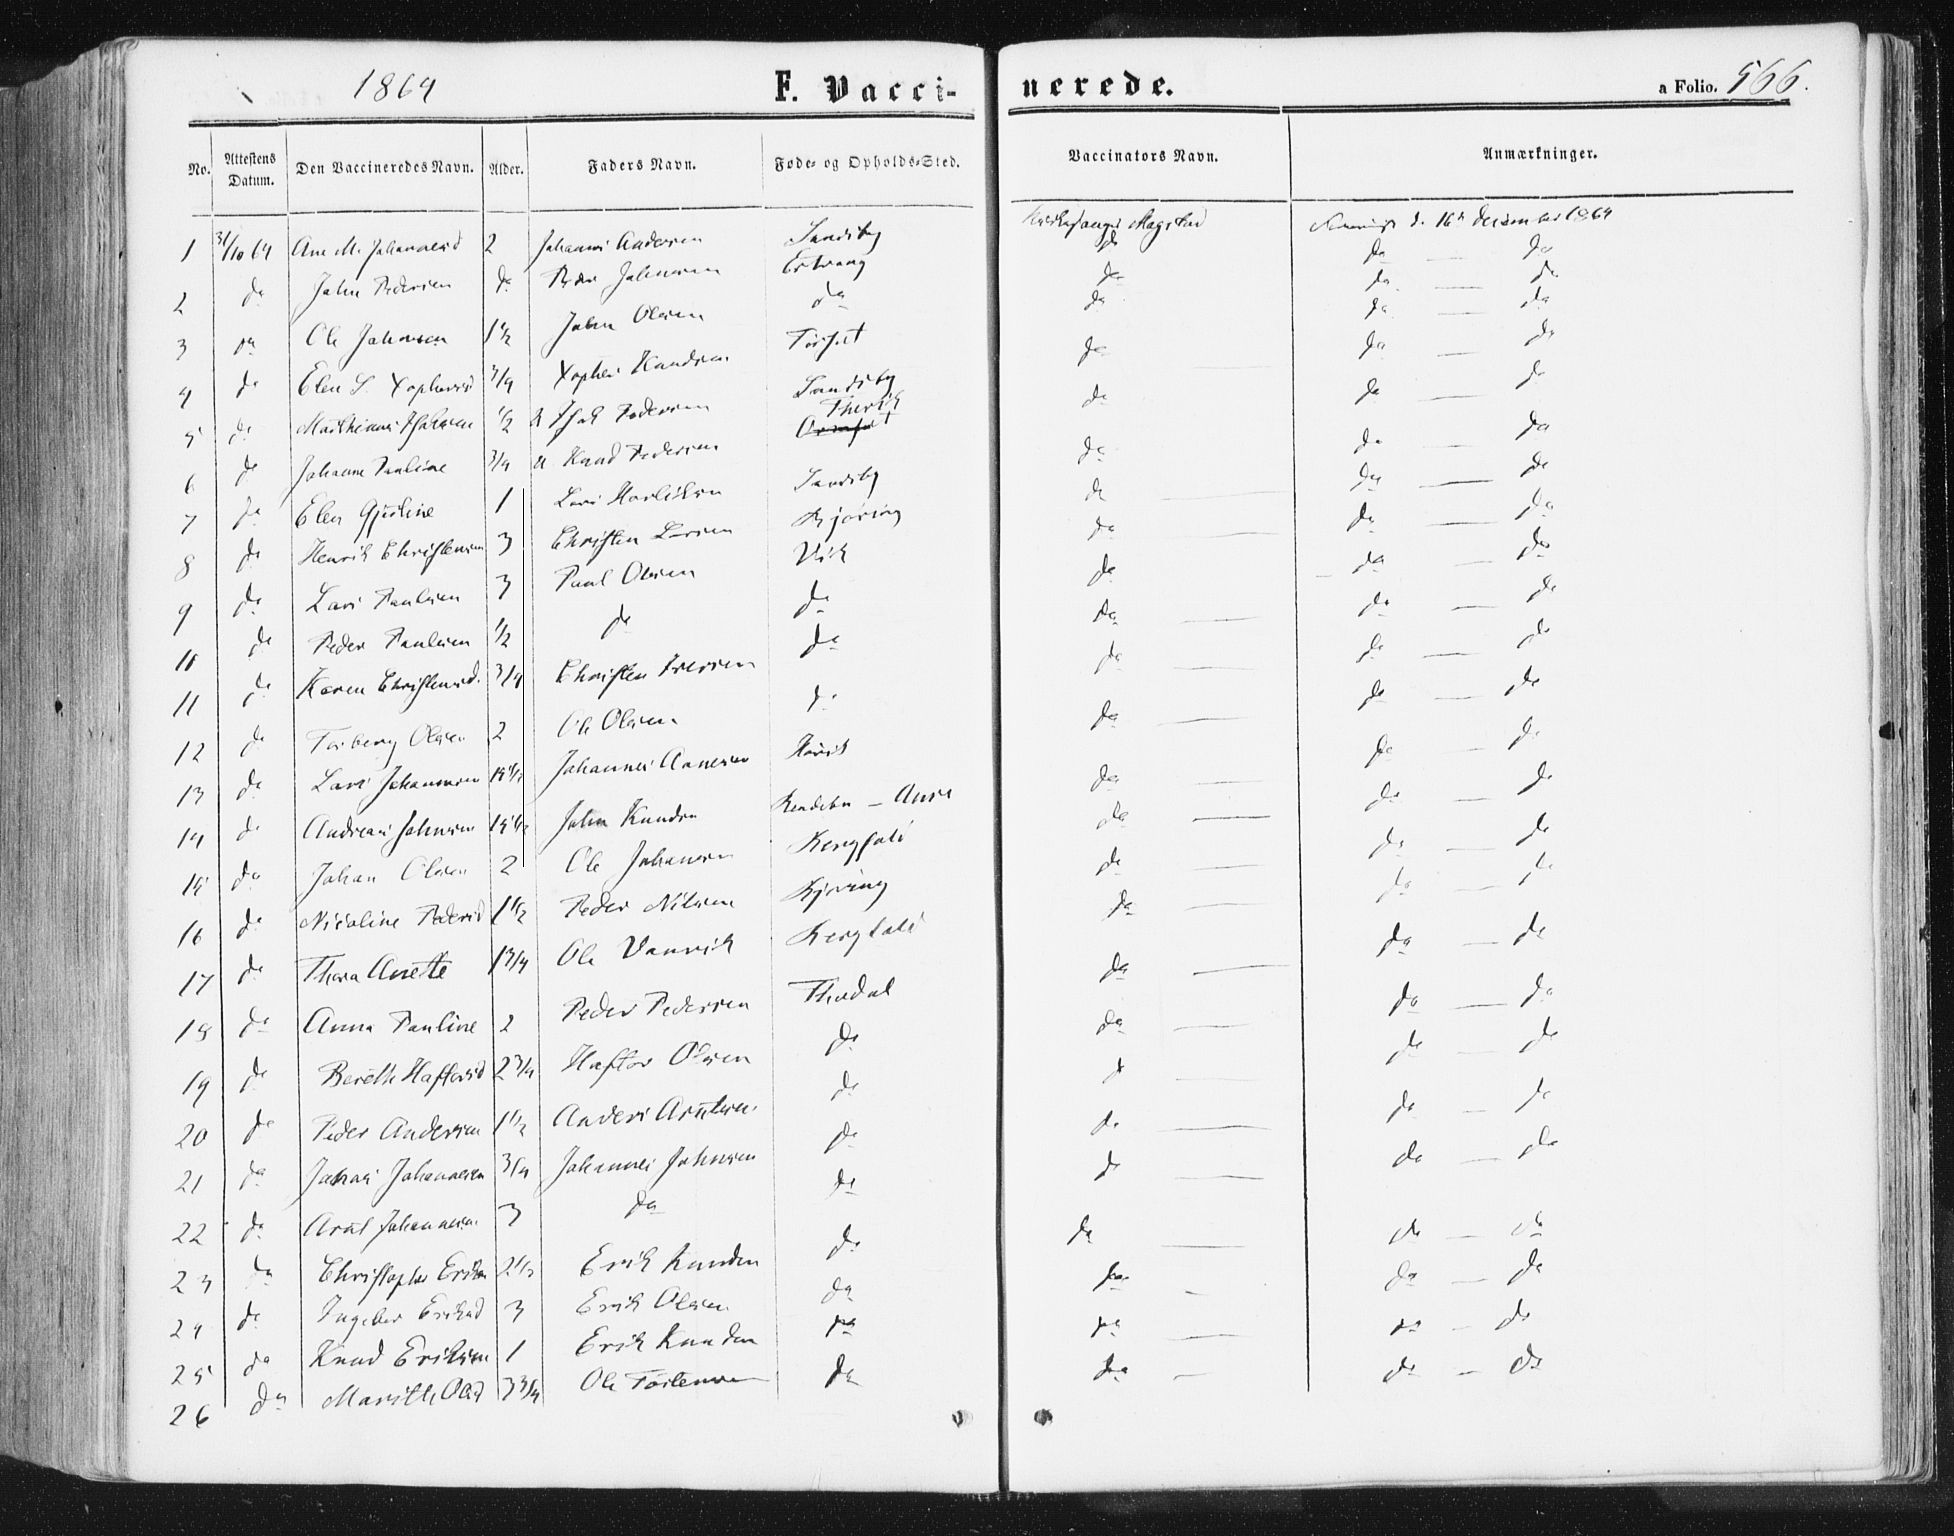 1864 F. Vaccinerede. a Folio. 566.
No. Attestens Datum. Den Vaccineredes Navn. Alder. Faders Navn. Føde- og Opholds-Sted. Vaccinators Navn. Anmærkninger.
1 31/10 64 Ane M. Johannesd 2 Johannes Andersen Sandsby Kirkesanger Magstad d. 16de December 1864
2 do John Pedersen do Peder Johnsen do do do
3 do Ole Johnsen 1 1/2 John Olsen do do do do
4 do Elen S. Xophersd 3/4 Xopher Knudsen Torset do do do
5 do Mathias 1/2 Pedersen Sandsby do do do
6 do Johanne Pauline 3/4 u Knud Pedersen do do do
7 do Elen Gjertine 1 Lars Sandsby do do do
8 do Henrik Christensen 3 Christen Larsen Kjøring do do do
9 do Lars Paulsen 3 Paul Olsen Vik do do do
10 do Peder Paulsen 1/2 do do do do do
11 do Karen Christensd. 3/4 Christen Iversen do do do do
12 do Torberg Olsen 2 Ole Olsen do do do do
13 do Lars Johannesen Johannes do do do
14 do Andreas Johnsen John Knudsen Aure do do do
15 do Johan Olsen 2 Ole Johansen do do do
16 do Nicoline Pedersd 1 1/2 Peder Nilsen Kjøring do do do
17 do Thora Anette 1 3/4 Ole Vanvik do do do
18 do Anna Pauline 2 Peder Pedersen do do do
19 do Bereth Haftorsd 2 3/4 Haftor Olsen do do do do
20 do Peder Andersen 1 1/2 Anders Arntsen do do do do
21 do Johannesen 3/4 Johannes Johnsen do do do do
22 do Arnt Johannesen 3 do do do do do
23 do Christopher Eriksen 2 1/2 Erik Knudsen do do do do
24 do Ingeber Eriksd 3 Erik Olsen do do do do
25 do Knud Eriksen 1 Erik Knudsen do do do do
26 do Marith Olsd 3 3/4 Ole do do do do